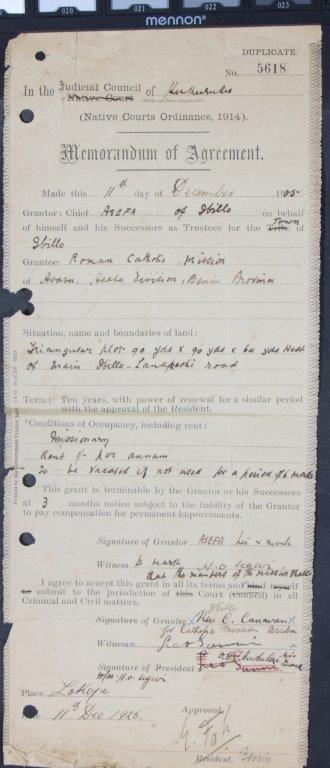 020 021 022 023
mennon®
DUPLICATE.
No. 5618
In the Judicial Council of Kukuruku
Native Court
(Native Courts Ordinance, 1914).
Memorandum of Agreement.
Made this 11th day of December 19
Grantor: Chief ASEFA of Ibillo on behalf
of himself and his Successors as Trustees for the Town Tribe of
Ibillo
Grantee: Roman Catholic Mission
of Asaba Division, Benin Province
Situation, name and boundaries of land:
Triangular plot 90 yds x 90 yds x 64 yds West
of main Ibillo- road
Term: Ten years, with power of renewal for a similar period
with the approval of the Resident.
Conditions of Occupancy, including rent:
Missionary
Rent 1/- per annum
To be vacated if not used for a period of 6 months
This grant is terminable by the Grantor or his Successors
at 3 months notice subject to the liability of the Grantor
to pay compensation for permanent improvements.
Signature of Grantor ASEFA his x mark
Witness to mark
that the members of the mission shall
I agree to accept this grant in all its terms and
or submit to the jurisdiction of this Court (Council) in all
Criminal and Civil matters.
Ibillo
Signature of Grantee x Rev C. Cunavan x
for Catholic Mission Asaba
Witness Geo
Signature of President his mark
Place Lokoja
Date 11th Dec 1926.
Approved,
Resident. Benin